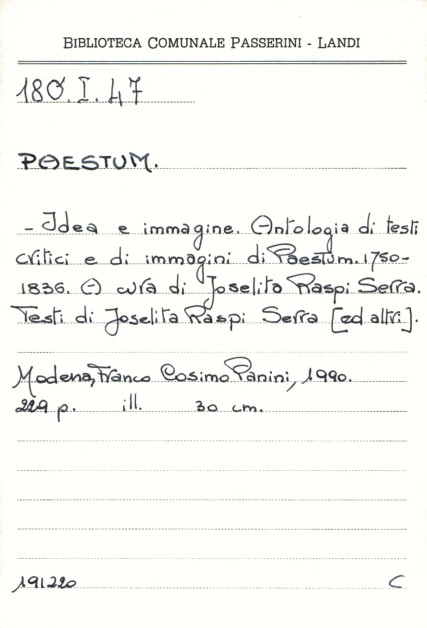 BIBLIOTECA COMUNALE PASSERINI - LANDI
180.I.47
PAESTUM.
- Idea e immagine. Antologia di testi
critici e di immagini di Paestum. 1750-
1836. A cura di Joselita Raspi Serra.
Testi di Joselita Raspi Serra [ed altri].
Modena, Franco Cosimo Panini, 1990.
229 p. ill. 30 cm.
191220 C